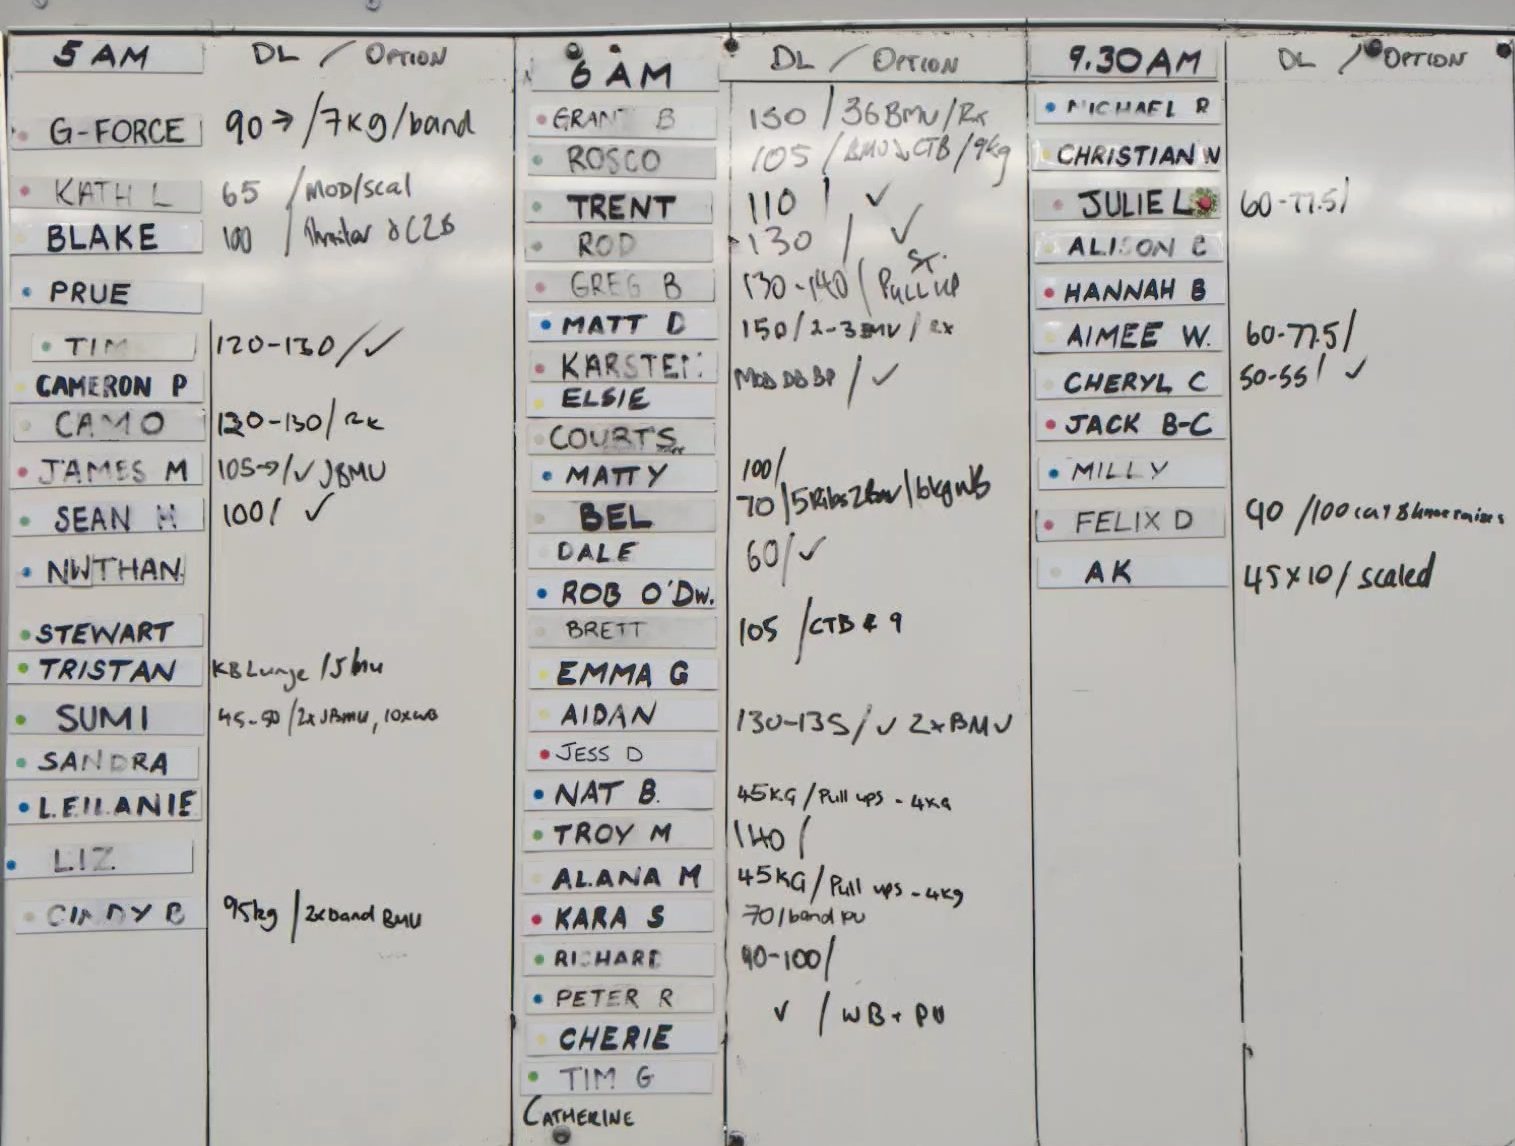 5 AM DL / OPTION
G-FORCE 90→ /7kg/band
KATH L 65 /MOD/scal
BLAKE 100 /
PRUE
TIM 120-130/✓
CAMERON P
CAMO 120-130/ Rx
JAMES M 105→/✓ JBMU
SEAN H 100/ ✓
NWTHAN.
STEWART
TRISTAN KB Lunge /5 bmu
SUMI 45-50/2xJBMU, 10xWB
SANDRA
LEILANIE
LIZ
CINDY B 95kg /2xband BMU
6 AM DL / OPTION
GRANT B 150 /36BMU/Rx
ROSCO 105 /BMU↘CTB/9kg
TRENT 110 / ✓
ROD 130 / ✓
GREG B 130-140/ ST. PULL UP
MATT D 150/2-3BMU/Rx
KARSTEN MOD DB BP / ✓
ELSIE
COURTS
MATTY 100/
BEL 70 /5Ribs2Bar/6kgWB
DALE 60/✓
ROB O'DW.
BRETT 105 /CTB & 9
EMMA G
AIDAN 130-135/✓ 2xBMU
JESS D
NAT B. 45KG/Pull ups - 4KG
TROY M 140 /
ALANA M 45KG/Pull ups - 4kg
KARA S 70/band PU
RICHARD 90-100/
PETER R ✓ / WB + PU
CHERIE
TIM G
CATHERINE
9.30AM DL / OPTION
MICHAEL R
CHRISTIAN W
JULIE L 60-77.5/
ALISON C
HANNAH B
AIMEE W. 60-77.5/
CHERYL C 50-55/ ✓
JACK B-C
MILLY
FELIX D 90 /100 cal & knee raises
AK 45x10/ scaled